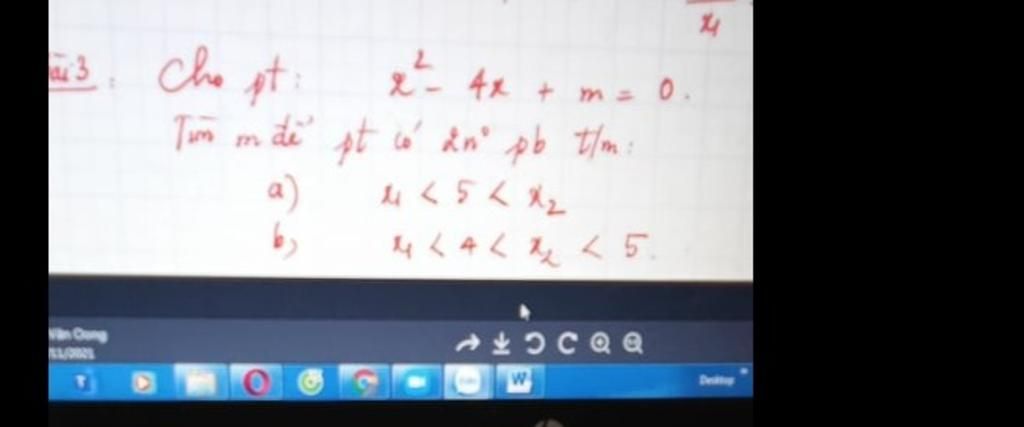 x₁
ài 3: Cho pt: x² - 4x + m = 0.
Tìm m để pt có 2n° pb t/m:
a) x₁ < 5 < x₂
b, x₁ < 4 < x₂ < 5.
Văn Cong
11/2021
W
Desktop